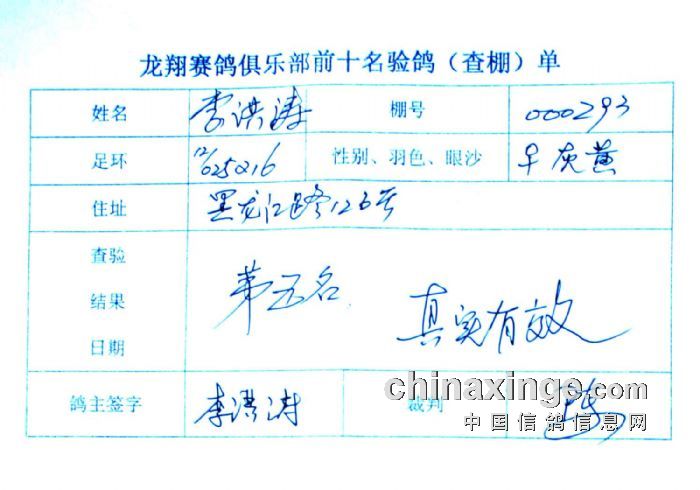 龙翔赛鸽俱乐部前十名验鸽（查棚）单
姓名 李洪涛 棚号 000293
足环 12/025216 性别、羽色、眼沙 灰黄
住址 黑龙江路126号
查验
结果
日期
第五名
真实有效
鸽主签字 李洪涛 裁判
chinaxinge.com
中国信鸽信息网